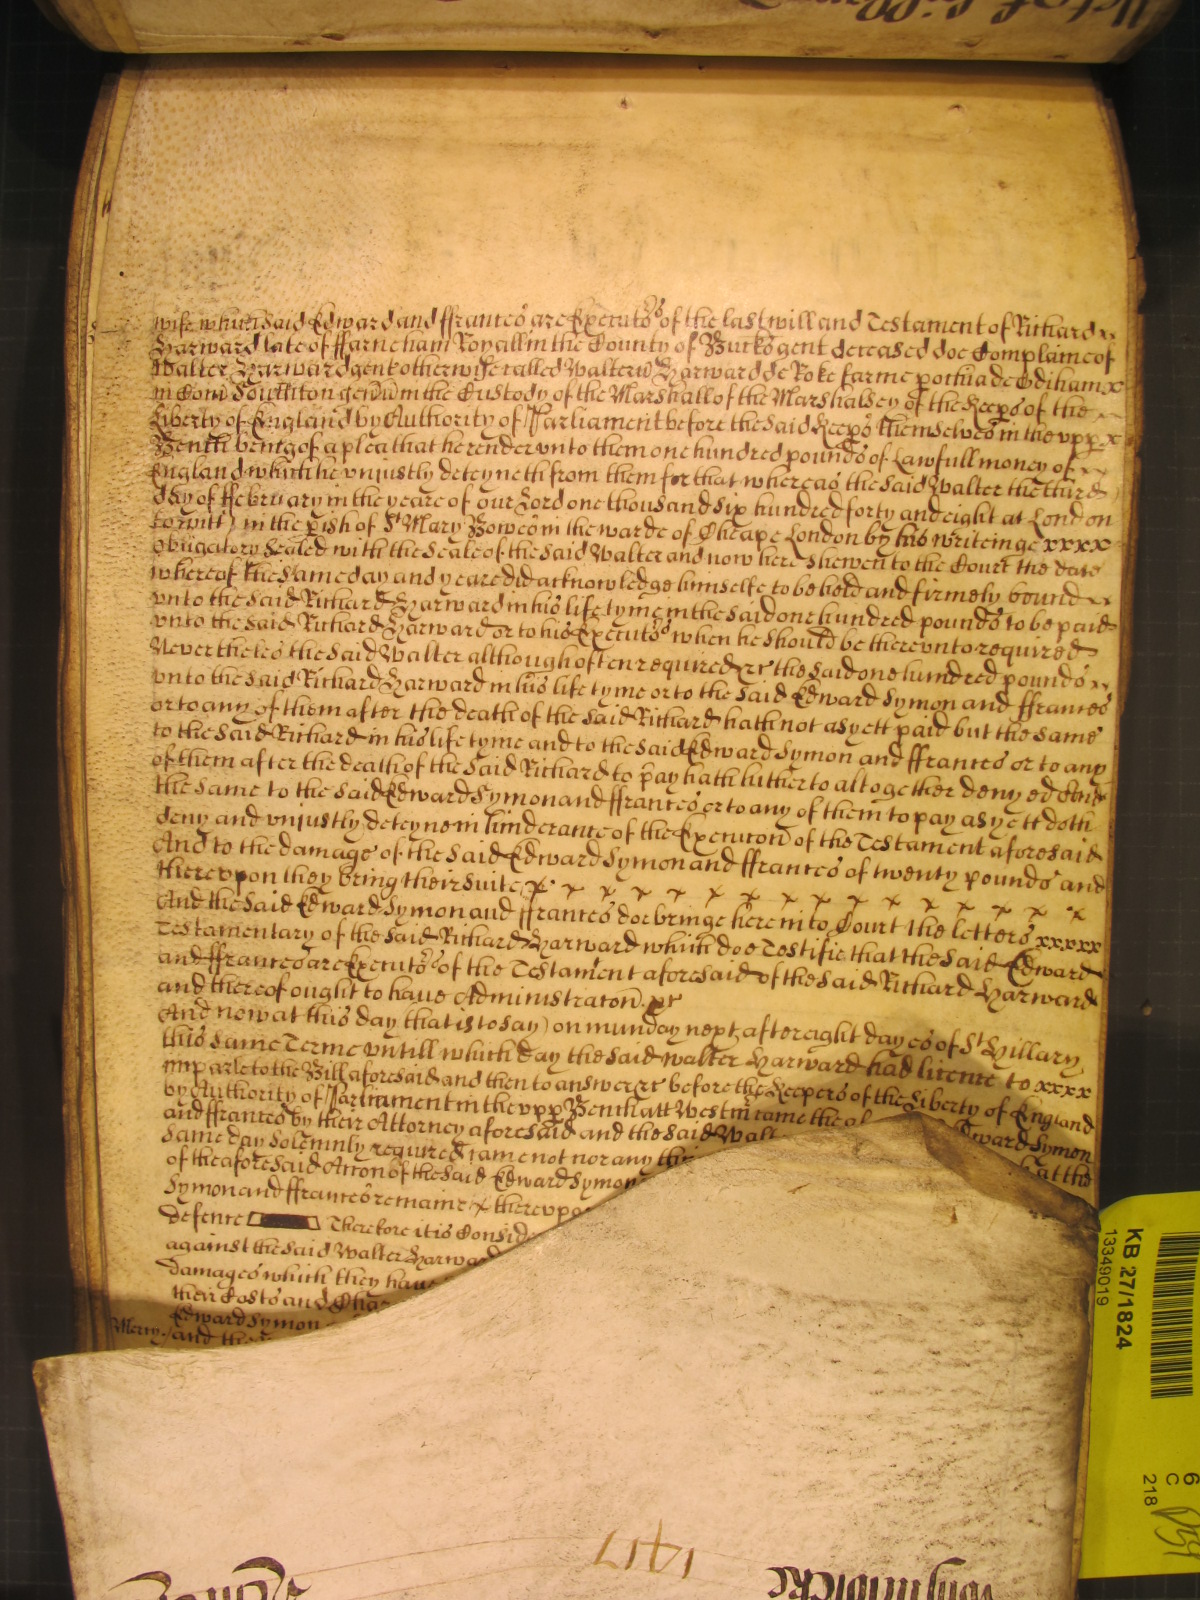 wife which said Edward and ffrances are Executors of the last will and Testament of Richard
Harward late of ffarneham Royall in the County of Bucks gent deceased doe Complaine of
Walter Harward gent otherwise called Walteru Harward de Roke farme pochia de Odiham x
in Com Southton gen in the Custody of the Marshall of the Marshalsey of the Keeps of the
Liberty of England by Authority of Parliament before the said Keeps themselves in the upp x
Bench being of a plea that he render unto them one hundred pounds of Lawfull money of
England which he unjustly deteyneth from them for that whereas the said Walter the third
day of ffebruary in the yeare of our Lord one thousand six hundred forty and eight at London
to witt) in the pish of St Mary Bowe in the warde of Cheape London by his writeinge xxxx
obligatory Sealed with the Seale of the said Walter and now here shewen to the Court the date
whereof the same day and yeare did acknowledge himselfe to be held and firmely bound
unto the said Richard Harward in his life tyme in the said one hundred pounds to be paid
unto the said Richard Harward or to his Executors when he should be thereunto required
Neverthelес the said Walter although often required &c the said one hundred pounds
unto the said Richard Harward in his life tyme or to the said Edward Symon and ffrances
or to any of them after the death of the said Richard hath not as yett paid but the same
to the said Richard in his life tyme and to the said Edward Symon and ffrances or to any
of them after the death of the said Richard to pay hath hitherto altogether denyed And
the same to the said Edward Symon and ffrances or to any of them to pay as yett doth
deny and unjustly deteyne in hinderance of the Execucon of the Testament aforesaid
And to the damage of the said Edward Symon and ffrances of twenty pounds and
thereupon they bring their suite &c x x x x x x x x x x x x x x x
And the said Edward Symon and ffrances doe bringe here into Court the letters xxxxx
Testamentary of the said Richard Harward which doe Testifie that the said Edward
and ffrances are Executors of the Testament aforesaid of the said Richard Harward
and thereof ought to have Administracon &c
And now at this day that is to say) on munday next after eight dayes of St Hillary
this same Terme untill which day the said walter Harward had licence to xxxx
imparle to the Bill aforesaid and then to answere &c before the Keepers of the Liberty of England
by Authority of Parliament in the upp Bench att Westm came the Edward Symon
and ffrances by their Attorney aforesaid and the said Walt at the
same day solemnly required came not nor any thi
of the aforesaid Accon of the said Edward Symon
Symon and ffrances remaine &c thereupo
defence Therefore it is Consid
against the said Walter Harwa
damages which they have
their Costs and Char
Edward Symon
Mercy and the
1417
KB 27/1824
13349019
6
C
218